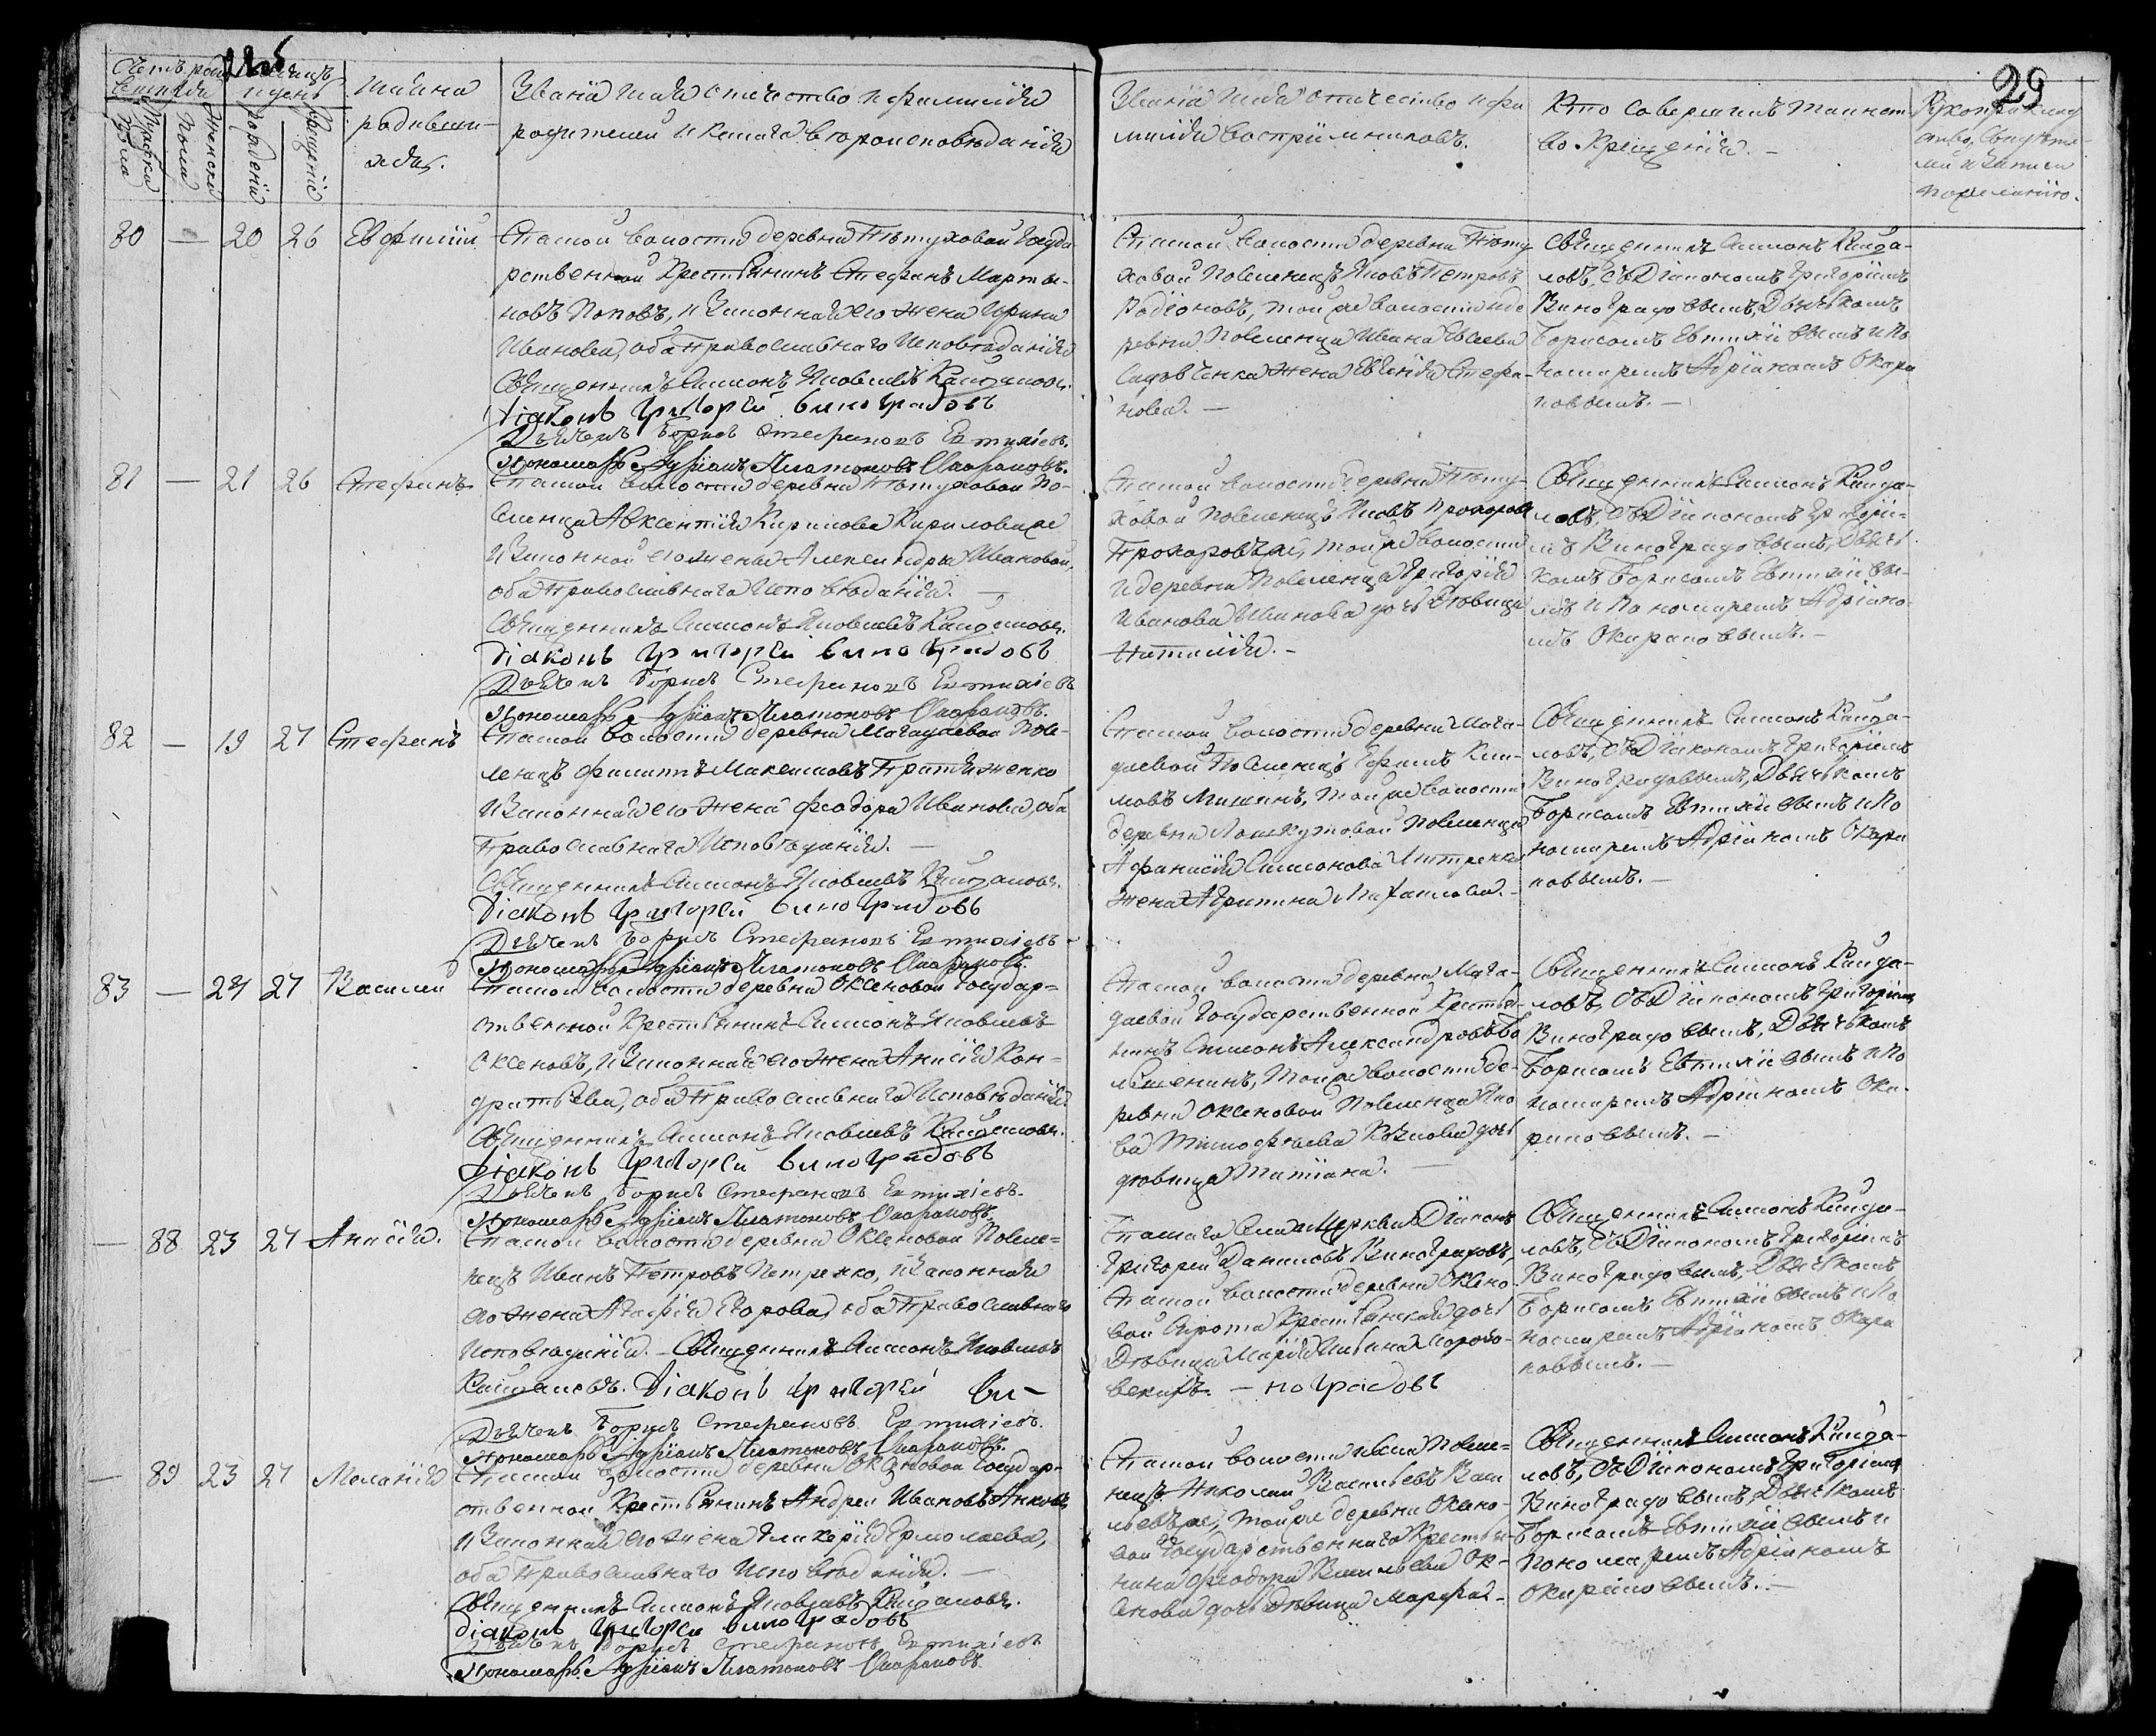 29
Имена
родивши-
хся.
Званія имя отчество и фамилія
родителей и какаго вѣроисповѣданія
Званія имя отчество и фа
милія воспріемниковъ.
Кто совершилъ таинст
во Крещенія. -
80 — 20 26 Евфимій
Спаской волости деревни Пѣтуховой Госуда
рственной Крестьянинъ Стефанъ Марты-
новъ Поповъ, и Законная его жена Ирина
Иванова, оба Православнаго Исповѣданія
Священникъ Симонъ Яковлевъ Кайдаловъ.
Діаконъ Григорей Виноградовъ
Дьячекъ Борисъ Стефановъ Евтихіевъ.
Пономарь Адріанъ Платоновъ
Спаской волости деревни Пѣту
ховой Поселенецъ Яковъ Петровъ
Родіоновъ, той же волости и де
ревни Поселенца Ивана Евсеева
жена Евгенія Стефа-
нова. —
Священникъ Симонъ Кайда-
ловъ, съ Діакономъ Григоріемъ
Виноградовымъ, Дьячькомъ
Борисомъ Евтихіевымъ и По
номаремъ Адріаномъ Окара
повымъ. —
81 — 21 26 Стефанъ
Спаской волости деревни Пѣтуховой По-
селенца Авксентія Кирилова Кирилова же
и Законной его жены Александры Ивановой,
оба Православнаго Исповѣданія. —
Священникъ Симонъ Яковлевъ Кайдаловъ.
Діаконъ Григорей Виноградовъ
Дьячекъ Борисъ Стефановъ Евтихіевъ
Пономарь Адріанъ Платоновъ
Спаской волости деревни Пѣту-
ховой Поселенецъ Яковъ Прохоровъ
Прохоровъ же, той же волости
и деревни Поселенца Григорія
Иванова Иванова дочь Дѣвица
Наталія. —
Священникъ Симонъ Кайда-
ловъ, съ Діакономъ Григорі-
мъ Виноградовымъ, Дьячь
комъ Борисомъ Евтихіевы-
мъ и Пономаремъ Адріано-
мъ Окараповымъ. —
82 — 19 27 Стефанъ
Спаской волости деревни Магадаевой Посе-
ленецъ Филипъ Максимовъ
и Законная его жена Феодора Иванова, оба
Православнаго Исповѣданія. —
Священникъ Симонъ Яковлевъ Кайдаловъ.
Діаконъ Григорей Виноградовъ
Дьячекъ Борисъ Стефановъ Евтихіевъ
Пономарь Адріанъ Платоновъ
Спаской волости деревни Мага-
даевой Поселенецъ Ефимъ Кли-
мовъ Мишинъ, той же волости
деревни Поселенца
Афанасія Симонова
жена Агрипина Михаилова. —
Священникъ Симонъ Кайда-
ловъ, съ Діакономъ Григоріемъ
Виноградовымъ, Дьячькомъ
Борисомъ Евтихіевымъ и По
номаремъ Адріаномъ Окара
повымъ. —
83 — 24 27 Василій
Спаской волости деревни Оксеновой Государ-
ственной Крестьянинъ Симонъ Яковлевъ
Оксеновъ, и Законная его жена Анисія Кон-
дратьева, оба Православнаго Исповѣданія
Священникъ Симонъ Яковлевъ Кайдаловъ.
Діаконъ Григорей Виноградовъ
Дьячекъ Борисъ Стефановъ Евтихіевъ.
Пономарь Адріанъ Платоновъ
Спаской волости деревни Мага-
даевой Государственной Крестья-
нинъ Симонъ Александровъ
той же волости де-
ревни Оксеновой Поселенца Яко
ва Тимофѣева Козлова дочь
дѣвица Татіана. —
Священникъ Симонъ Кайда-
ловъ, съ Діакономъ Григоріемъ
Виноградовымъ, Дьячькомъ
Борисомъ Евтихіевымъ и По
номаремъ Адріаномъ Ока-
раповымъ. —
— 88 23 27 Анисія.
Спаской волости деревни Оксеновой Поселе-
нецъ Иванъ Петровъ Петренко, и Законная
его жена Агафія Егорова, оба Православнаго
Исповѣданія. — Священникъ Симонъ Яковлевъ
Кайдаловъ. Діаконъ Григорей Ви-
Дьячекъ Борисъ Стефановъ Евтихіевъ.
Пономарь Адріанъ Платоновъ
Спаскаго Села Церкви Діаконъ
Григорей Даниловъ Виноградовъ,
Спаской волости деревни Оксено
вой Сирота Крестьянская дочь
Дѣвица Марія
— ноградовъ
Священникъ Симонъ Кайда-
ловъ, съ Діакономъ Григоріемъ
Виноградовымъ, Дьячькомъ
Борисомъ Евтихіевымъ и По
номаремъ Адріаномъ Окара
повымъ. —
— 89 23 27 Меланія
Спаской волости деревни Оксеновой Государ-
ственной Крестьянинъ Андрей Ивановъ
и Законная его жена Гликерія Ермолаева,
оба Православнаго Исповѣданія. —
Священникъ Симонъ Яковлевъ Кайдаловъ.
Діаконъ Григорей Виноградовъ
Дьячекъ Борисъ Стефановъ Евтихіевъ
Пономарь Адріанъ Платоновъ
Спаской волости и Села Поселе-
нецъ Николай Васильевъ Васи
льевъ же, той же деревни Оксено-
вой Государственнаго Крестья-
нина Феодора Васильева Ок-
сенова дочь Дѣвица Марфа. —
Священникъ Симонъ Кайда-
ловъ, съ Діакономъ Григоріемъ
Виноградовымъ, Дьячькомъ
Борисомъ Евтихіевымъ и
Пономаремъ Адріаномъ
Окараповымъ. —